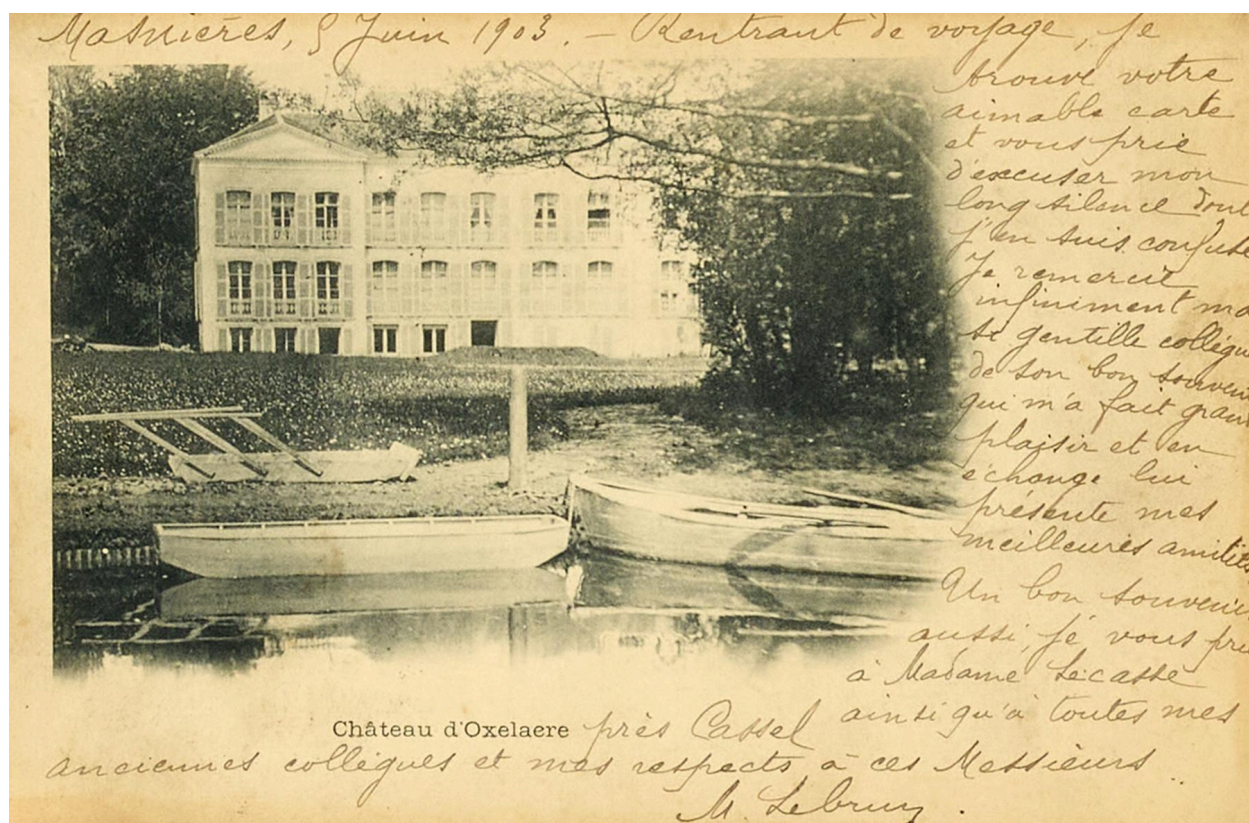 Masnières, 5 Juin 1903. – Rentrant de voyage, je
trouve votre
aimable carte
et vous prie
d'excuser mon
long silence dont
j'en suis confuse
Je remercie
infiniment ma
si gentille collègue
de son bon souvenir
qui m'a fait grand
plaisir et en
échange lui
présente mes
meilleures amitiés
Un bon souvenir
aussi, je vous prie
à Madame Lecasse
ainsi qu'à toutes mes
Château d'Oxelaere près Cassel
anciennes collègues et mes respects à ces Messieurs
M. Lebrun.